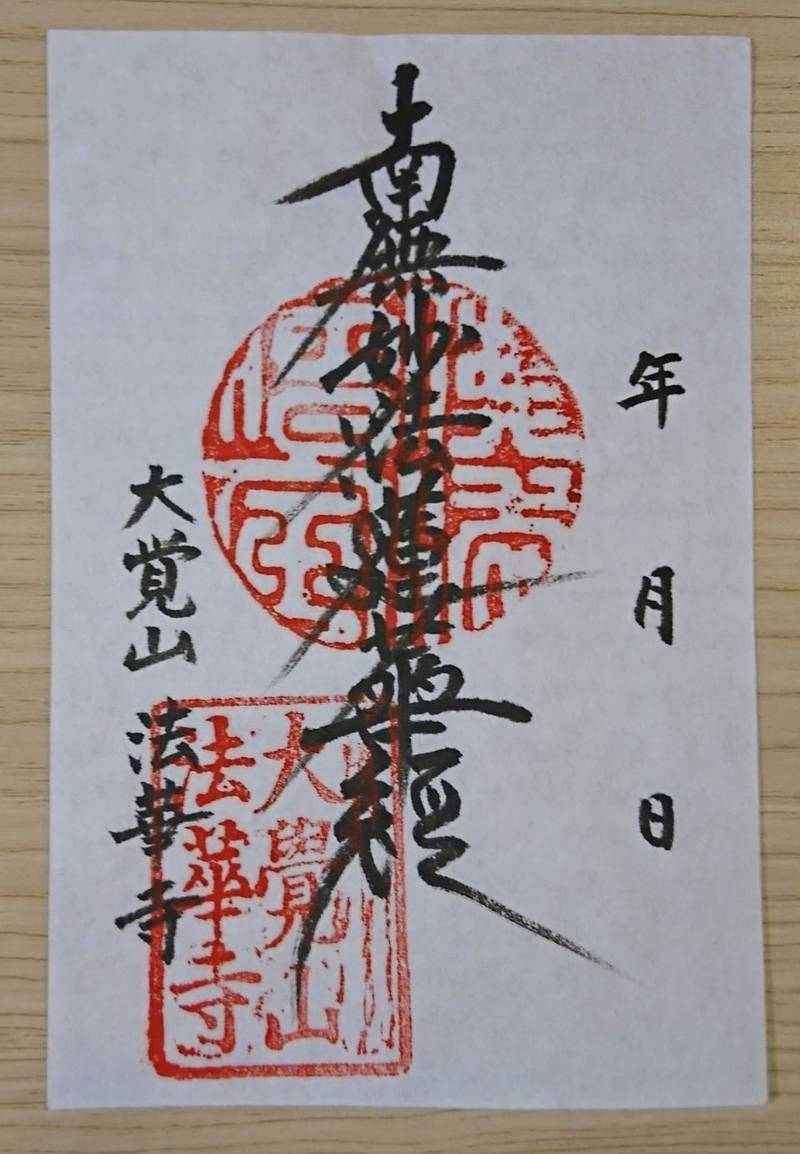 年 月 日
南無妙法蓮華経
大覚山 法華寺
大覺山
法華寺